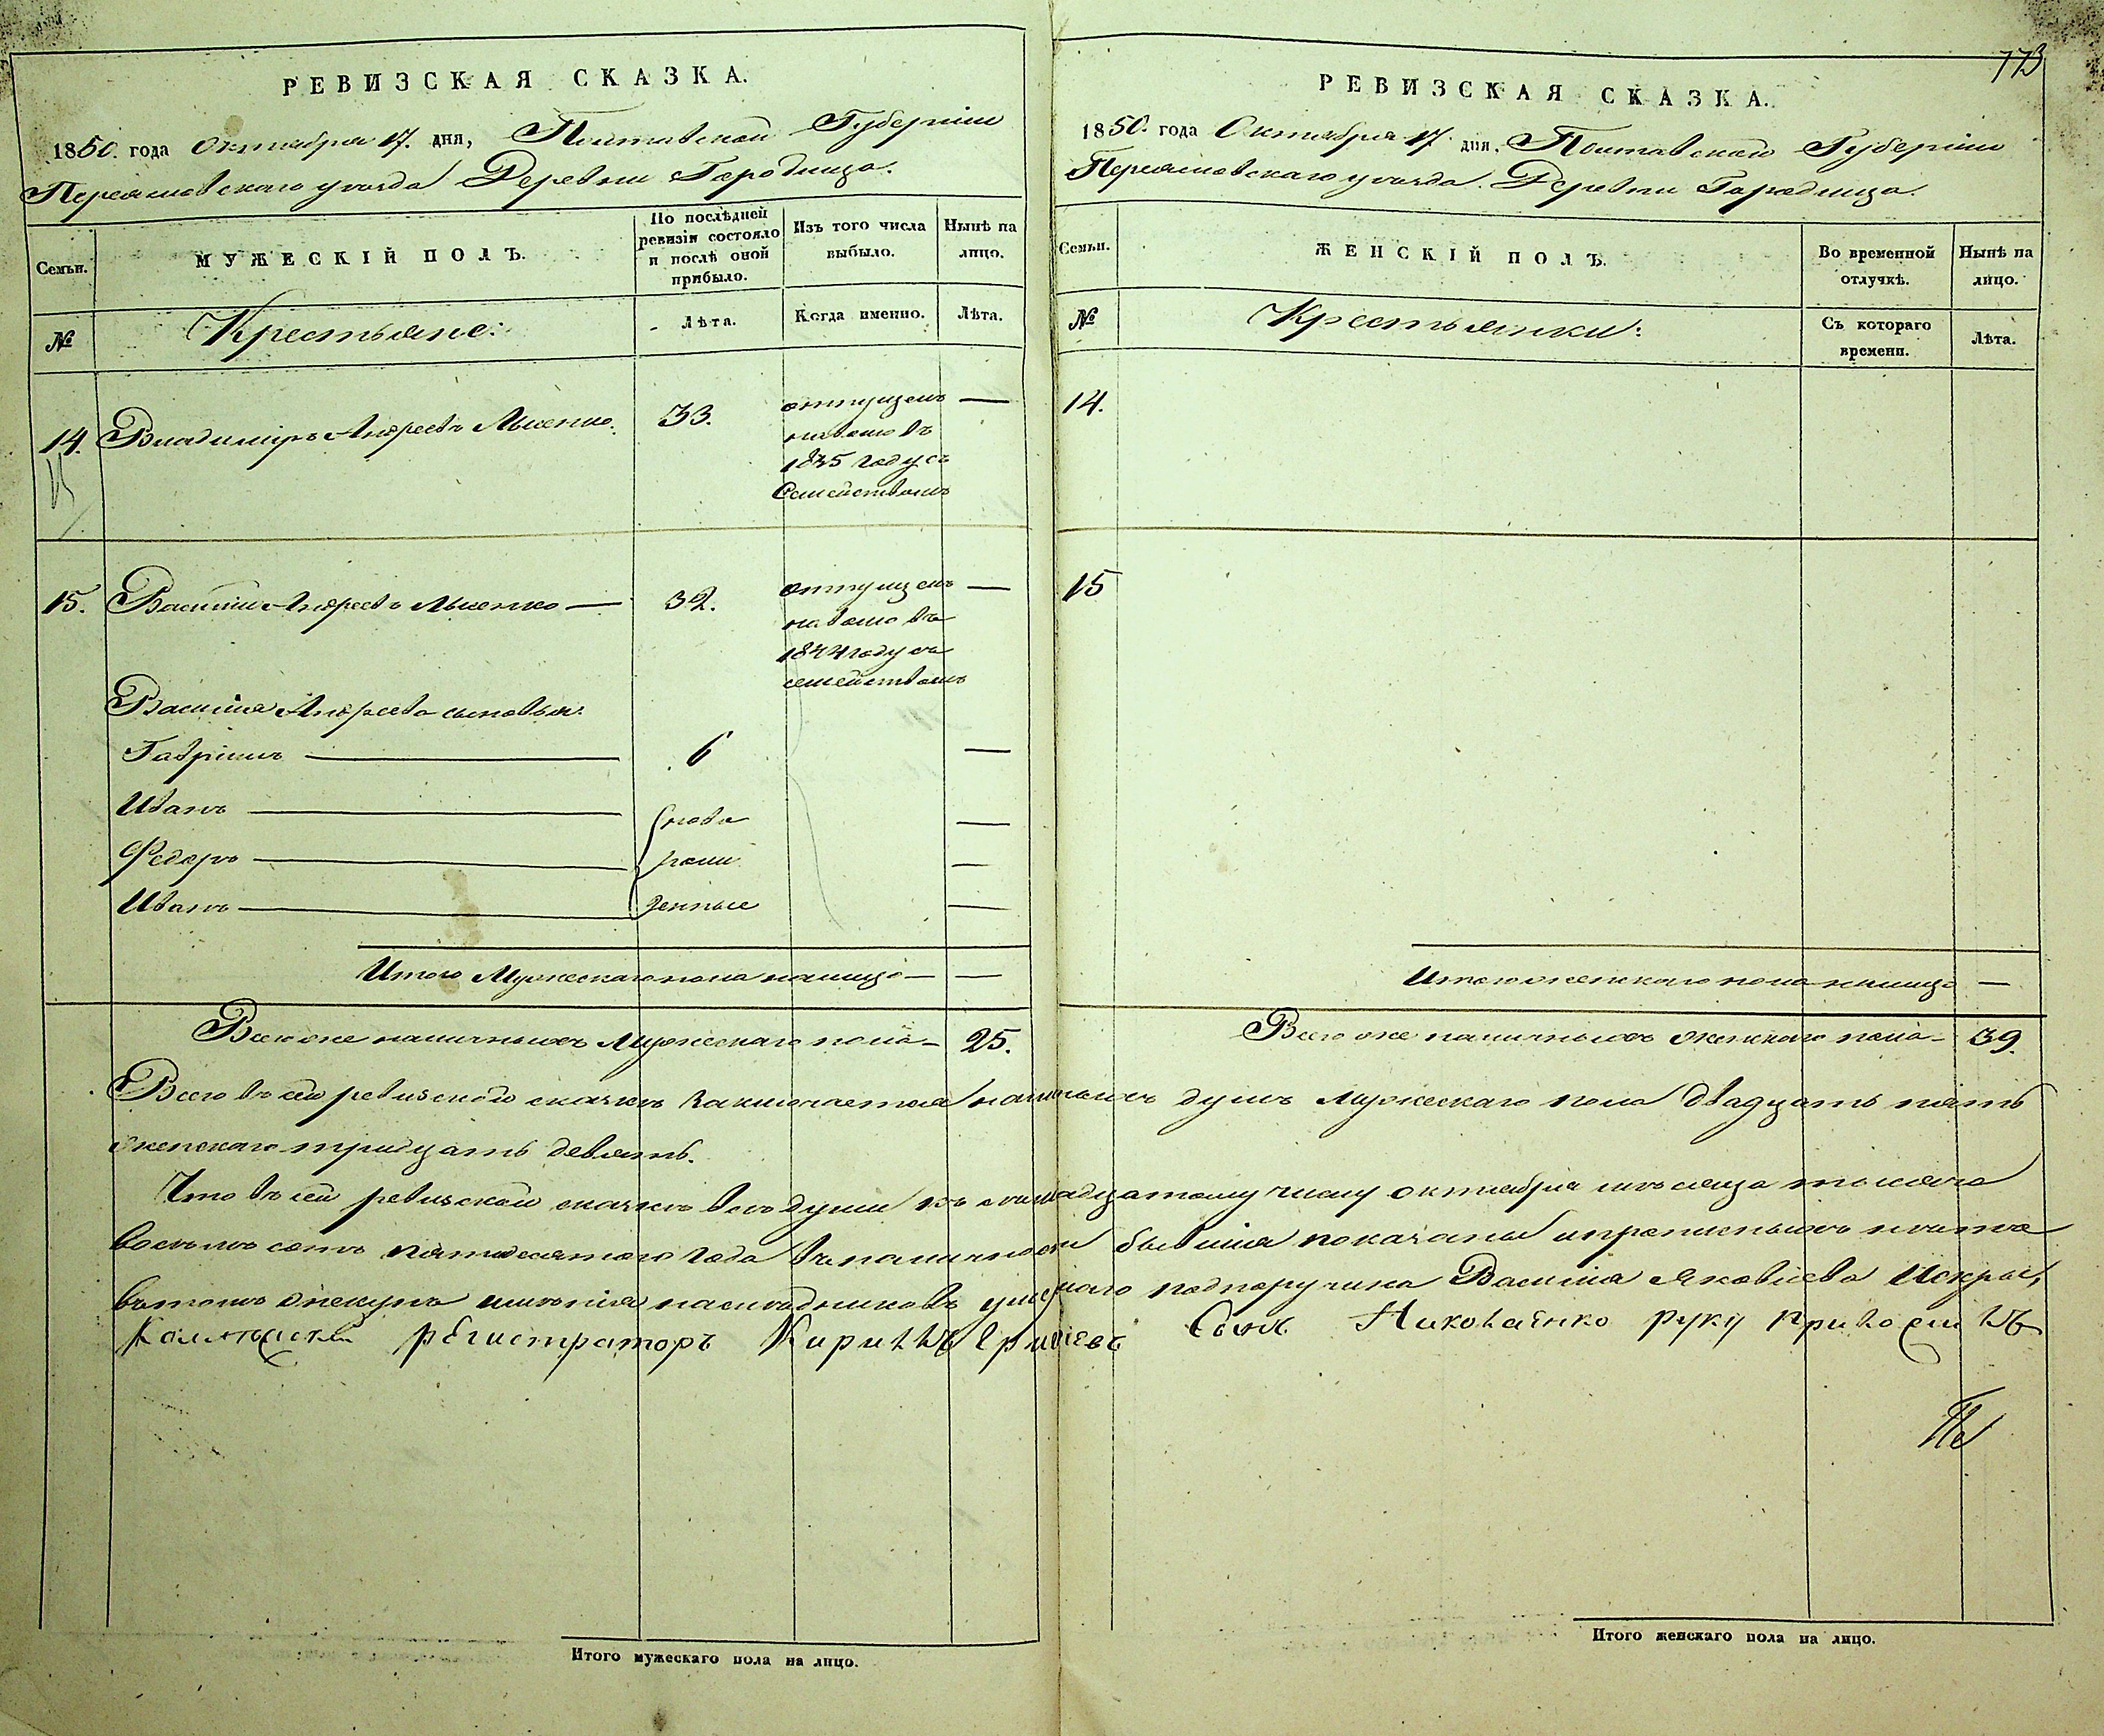 773
РЕВИЗСКАЯ СКАЗКА.
1850. года Октября 17. дня, Полтавской Губерніи
Переяславскаго уѣзда Деревни Городища.
Семьи.
МУЖЕСКІЙ ПОЛЪ.
По послѣдней
ревизіи состояло
и послѣ оной
прибыло.
Изъ того числа
выбыло.
Нынѣ на
лицо.
№
Крестьяне:
Лѣта.
Когда именно.
Лѣта.
14. Владиміръ Андреевъ Лысенко. 33. отпущенъ —
на волю въ
1845 году съ
Семействомъ
15. Василій Андреевъ Лысенко — 32. отпущенъ —
на волю въ
1844 году съ
семействомъ
Василія Андреева сыновья:
Гавріилъ — 6 —
Иванъ — (ново —
Федоръ — рож —
Иванъ — денные —
Итого Мужескаго пола налицо — —
Всего же наличныхъ Мужескаго пола — 25.
РЕВИЗСКАЯ СКАЗКА.
1850. года Октября 17. дня, Полтавской Губерніи
Переяславскаго уѣзда. Деревни Городища.
Семьи.
ЖЕНСКІЙ ПОЛЪ.
Во временной
отлучкѣ.
Нынѣ на
лицо.
№
Крестьянки:
Съ котораго
времени.
Лѣта.
14.
15
Итого женскаго пола налицо —
Всего же наличныхъ женскаго пола — 39.
Всего въ сей ревизской сказкѣ заключается наличныхъ душъ мужескаго пола двадцать пять
женскаго тридцать девять.
Что въ сей ревизской сказкѣ всѣ души къ семнадцатому числу октября мѣсяца тысяча
восемь сотъ пятидесятаго года въ наличности бывшія показаны и прописныхъ нѣтъ
въ томъ опекунъ имѣнія наслѣдниковъ умершаго подпоручика Василія Яковлева Искры,
Колежскій регистраторъ Кирилъ Сынъ Николаенко руку приложилъ
Итого мужескаго пола на лицо.
Итого женскаго пола на лицо.